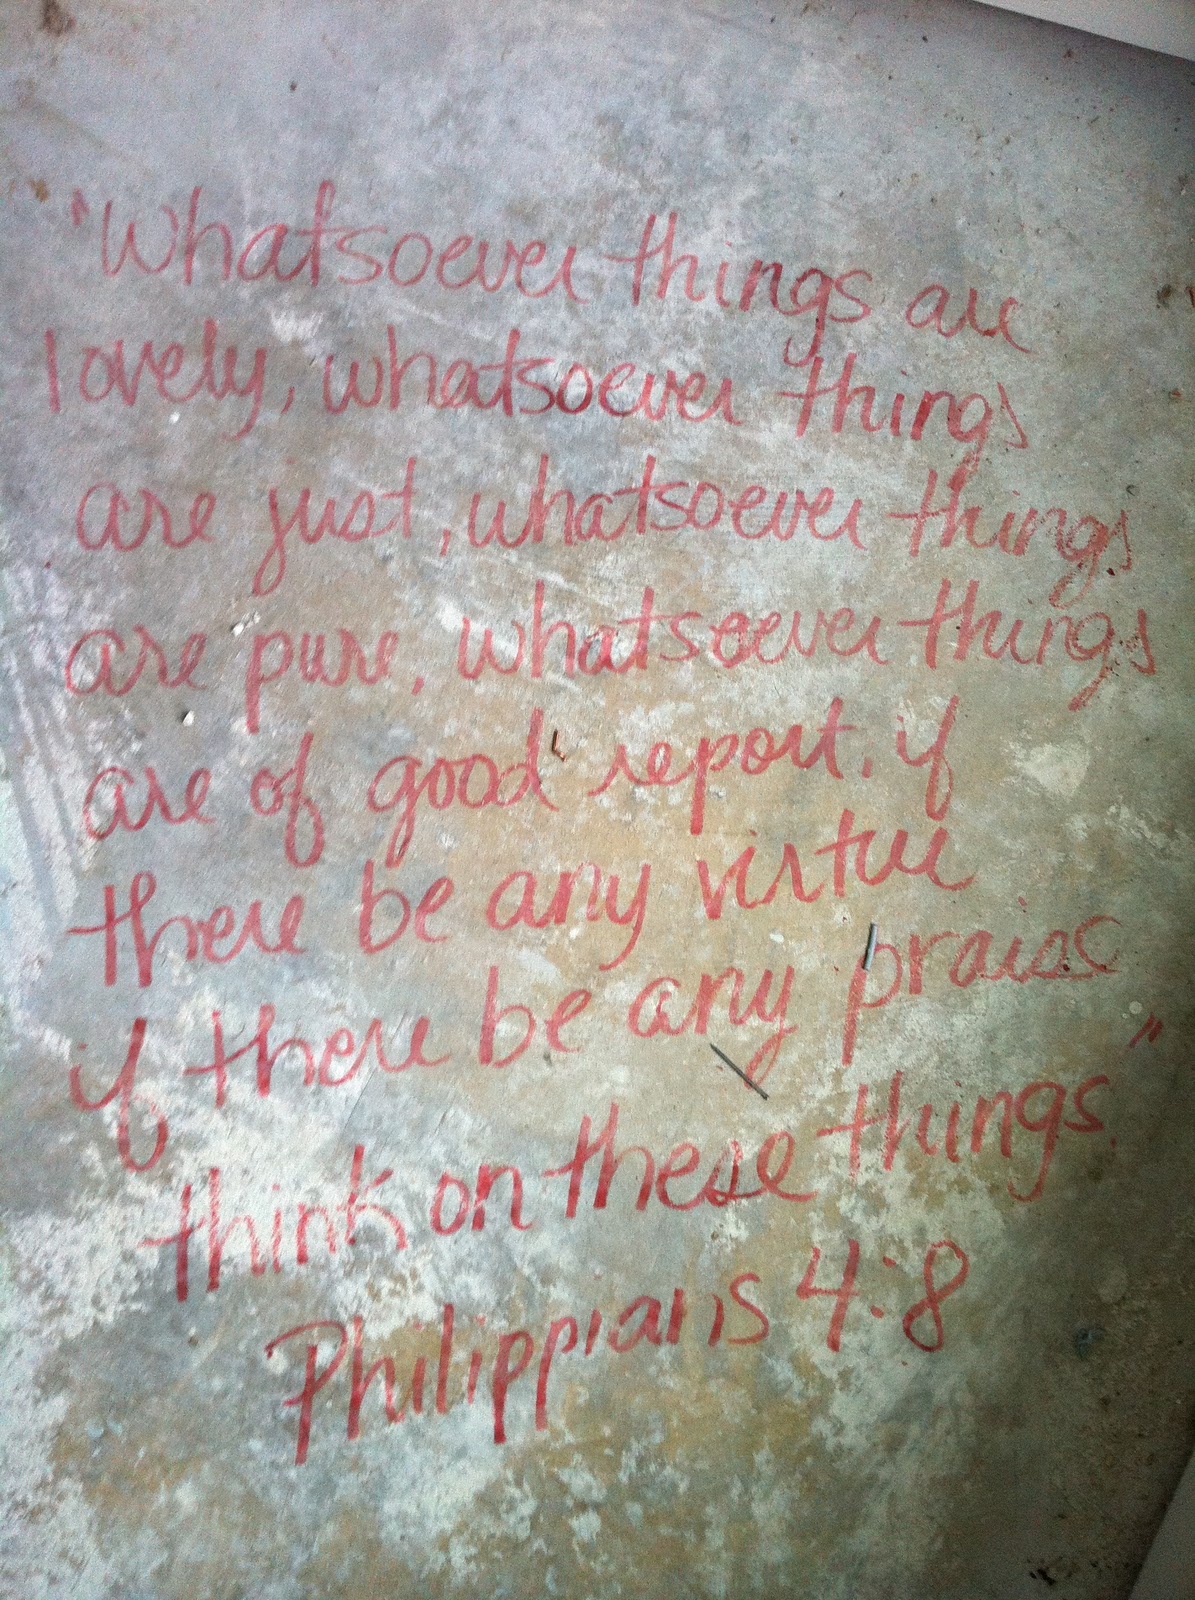 "Whatsoever things are
lovely, whatsoever things
are just, whatsoever things
are pure, whatsoever things
are of good report, if
there be any virtue
if there be any praise
think on these things."
Philippians 4:8